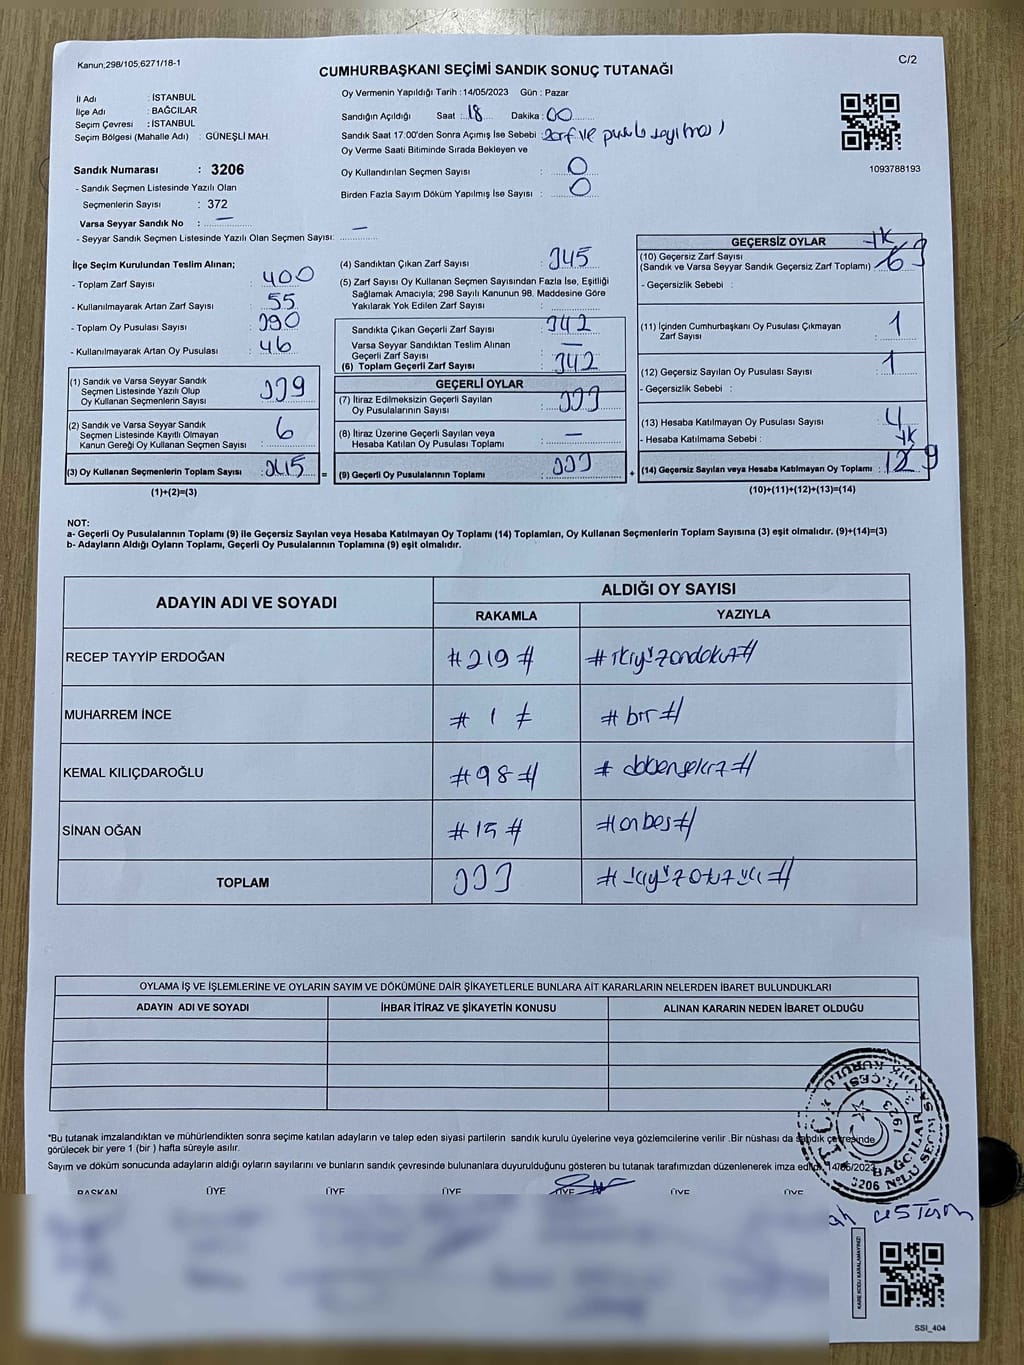 Kanun,298/105,6271/18-1
C/2
CUMHURBAŞKANI SEÇİMİ SANDIK SONUÇ TUTANAĞI
İl Adı : İSTANBUL
İlçe Adı : BAĞCILAR
Seçim Çevresi : İSTANBUL
Seçim Bölgesi (Mahalle Adı) : GÜNEŞLİ MAH.
Sandık Numarası : 3206
- Sandık Seçmen Listesinde Yazılı Olan
Seçmenlerin Sayısı : 372
Varsa Seyyar Sandık No : —
- Seyyar Sandık Seçmen Listesinde Yazılı Olan Seçmen Sayısı: —
Oy Vermenin Yapıldığı Tarih :14/05/2023 Gün : Pazar
Sandığın Açıldığı Saat : 18 Dakika : 00
Sandık Saat 17:00'den Sonra Açımış İse Sebebi : zarf ve pusula sayılması
Oy Verme Saati Bitiminde Sırada Bekleyen ve
Oy Kullandırılan Seçmen Sayısı : 0
Birden Fazla Sayım Döküm Yapılmış İse Sayısı : 0
1093788193
İlçe Seçim Kurulundan Teslim Alınan;
- Toplam Zarf Sayısı : 400
- Kullanılmayarak Artan Zarf Sayısı : 55
- Toplam Oy Pusulası Sayısı : 390
- Kullanılmayarak Artan Oy Pusulası : 46
(1) Sandık ve Varsa Seyyar Sandık
Seçmen Listesinde Yazılı Olup
Oy Kullanan Seçmenlerin Sayısı : 339
(2) Sandık ve Varsa Seyyar Sandık
Seçmen Listesinde Kayıtlı Olmayan
Kanun Gereği Oy Kullanan Seçmen Sayısı : 6
(3) Oy Kullanan Seçmenlerin Toplam Sayısı : 345 =
(1)+(2)=(3)
(4) Sandıktan Çıkan Zarf Sayısı : 345
(5) Zarf Sayısı Oy Kullanan Seçmen Sayısından Fazla İse, Eşitliği
Sağlamak Amacıyla; 298 Sayılı Kanunun 98. Maddesine Göre
Yakılarak Yok Edilen Zarf Sayısı :
Sandıkta Çıkan Geçerli Zarf Sayısı : 342
Varsa Seyyar Sandıktan Teslim Alınan
Geçerli Zarf Sayısı : —
(6) Toplam Geçerli Zarf Sayısı : 342
GEÇERLİ OYLAR
(7) İtiraz Edilmeksizin Geçerli Sayılan
Oy Pusulalarının Sayısı : 333
(8) İtiraz Üzerine Geçerli Sayılan veya
Hesaba Katılan Oy Pusulası Toplamı : —
(9) Geçerli Oy Pusulalarının Toplamı : 333 +
GEÇERSİZ OYLAR
(10) Geçersiz Zarf Sayısı
(Sandık ve Varsa Seyyar Sandık Geçersiz Zarf Toplamı) : 3
- Geçersizlik Sebebi :
(11) İçinden Cumhurbaşkanı Oy Pusulası Çıkmayan
Zarf Sayısı : 1
(12) Geçersiz Sayılan Oy Pusulası Sayısı : 1
- Geçersizlik Sebebi :
(13) Hesaba Katılmayan Oy Pusulası Sayısı : 4
- Hesaba Katılmama Sebebi :
(14) Geçersiz Sayılan veya Hesaba Katılmayan Oy Toplamı : 12 9
(10)+(11)+(12)+(13)=(14)
NOT:
a- Geçerli Oy Pusulalarının Toplamı (9) ile Geçersiz Sayılan veya Hesaba Katılmayan Oy Toplamı (14) Toplamları, Oy Kullanan Seçmenlerin Toplam Sayısına (3) eşit olmalıdır. (9)+(14)=(3)
b- Adayların Aldığı Oyların Toplamı, Geçerli Oy Pusulalarının Toplamına (9) eşit olmalıdır.
ADAYIN ADI VE SOYADI
ALDIĞI OY SAYISI
RAKAMLA YAZIYLA
RECEP TAYYİP ERDOĞAN # 219 # # ikiyüzondokuz #
MUHARREM İNCE # 1 # # bir #
KEMAL KILIÇDAROĞLU # 98 # # doksensekiz #
SİNAN OĞAN # 15 # # onbes #
TOPLAM 333
OYLAMA İŞ VE İŞLEMLERİNE VE OYLARIN SAYIM VE DÖKÜMÜNE DAİR ŞİKAYETLERLE BUNLARA AİT KARARLARIN NELERDEN İBARET BULUNDUKLARI
ADAYIN ADI VE SOYADI İHBAR İTİRAZ VE ŞİKAYETİN KONUSU ALINAN KARARIN NEDEN İBARET OLDUĞU
*Bu tutanak imzalandıktan ve mühürlendikten sonra seçime katılan adayların ve talep eden siyasi partilerin sandık kurulu üyelerine veya gözlemcilerine verilir .Bir nüshası da sandık çevresinde
görülecek bir yere 1 (bir ) hafta süreyle asılır.
Sayım ve döküm sonucunda adayların aldığı oyların sayılarını ve bunların sandık çevresinde bulunanlara duyurulduğunu gösteren bu tutanak tarafımızdan düzenlenerek imza edildi. 14/05/2023
BAŞKAN ÜYE ÜYE ÜYE ÜYE ÜYE ÜYE
T.C. BAĞCILAR İLÇESİ
3206 NOLU SEÇİM SANDIK KURULU
KARE KODU KARALAMAYINIZ!
SSI_404